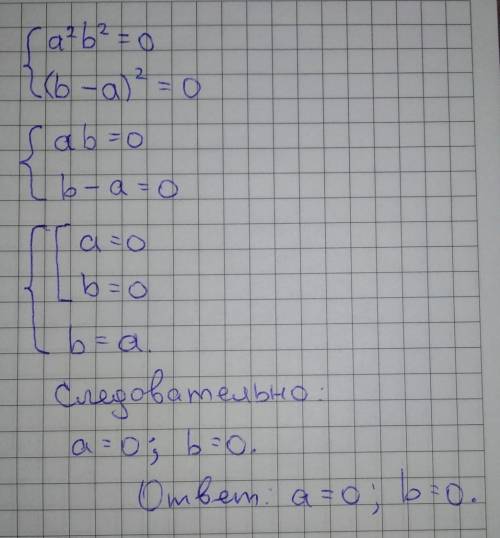 a²b² = 0
(b - a)² = 0
ab = 0
b - a = 0
a = 0
b = 0
b = a.
Следовательно:
a = 0; b = 0.
Ответ: a = 0; b = 0.